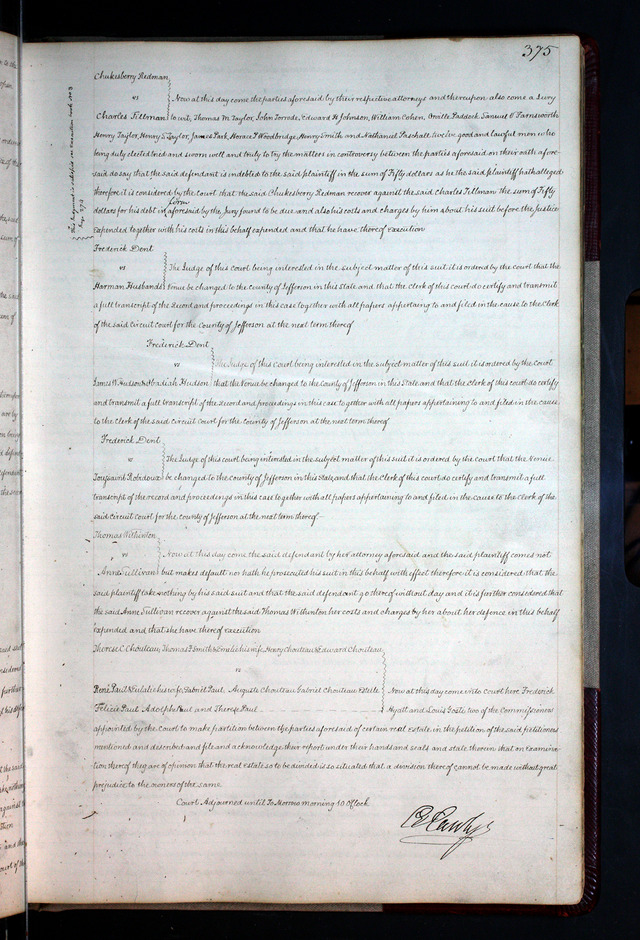 375
Chukesberry Redman
vs Now at this day come the parties aforesaid by their respective attorneys and thereupon also come a Jury
Charles Tillman to wit, Thomas M. Taylor, John Torrode, Edward H Johnson, William Cohen, Orville Paddock, Samuel C Farnsworth
Henry Taylor, Henry S. Taylor, James Park, Horace P Woodbridge, Henry Smith and Nathaniel Paschall twelve good and lawful men who
being duly elected tried and sworn well and truly to try the matters in controversy between the parties aforesaid on their oath afore-
said do say that the said defendant is indebted to the said plaintiff in the sum of Fifty dollars as he the said plaintiff hath alleged
therefore it is considered by the court that the said Chukesberry Redman recover against the said Charles Tillman the sum of Fifty
dollars for his debt in form aforesaid by the Jury found to be due and also his costs and charges by him about his suit before the Justice
expended together with his costs in this behalf expended and that he have thereof execution
This Judgment is satisfied see Execution book No 3
Page 373
Frederick Dent
vs The Judge of this court being interested in the subject matter of this suit it is ordered by the court that the
Harman Husbands Venue be changed to the county of Jefferson in this State and that the clerk of this court do certify and transmit
a full transcript of the record and proceedings in this case together with all papers appertaing to and filed in the cause to the Clerk
of the said circuit court for the County of Jefferson at the next term thereof
Frederick Dent
vs The Judge of this court being interested in the subject matter of this suit it is ordered by the court
James W Hudson & Obadiah Hudson that the Venue be changed to the County of Jefferson in this State and that the Clerk of this court do certify
and transmit a full transcript of the record and proceedings in this case together with all papers appertaining to and filed in the cause
to the Clerk of the said circuit court for the county of Jefferson at the next term thereof
Frederick Dent
vs The Judge of this court being interested in the subject matter of this suit it is ordered by the court that the Venue
Toussaint Robidoux be changed to the county of Jefferson in this State, and that the Clerk of this court do certify and transmit a full
transcript of the record and proceedings in this case together with all papers appertaining to and filed in the cause to the Clerk of the
said circuit court for the county of Jefferson at the next term thereof
Thomas Withinton
vs Now at this day come the said defendant by her attorney aforesaid and the said plaintiff comes not
Anne Sullivan but makes default nor hath he prosecuted his suit in this behalf with effect therefore it is considered that the
said plaintiff take nothing by his said suit and that the said defendant go thereof without day and it is further considered that
the said Anne Sullivan recover against the said Thomas Withinton her costs and charges by her about her defence in this behalf
expended and that she have thereof execution
Therese C Chouteau, Thomas F Smith & Emalie his wife, Henry Chouteau & Edward Chouteau
vs
René Paul & Eulalie his wife, Gabriel Paul, Auguste Chouteau, Gabriel Chouteau Estelle Now at this day come into Court here Frederick
Felicie Paul Adolphe Paul and Therese Paul Hyatt and Louis two of the Commissioners
appointed by the court to make partition between the parties aforesaid of certain real estate in the petition of the said petitioners
mentioned and described and file and acknowledge their report under their hands and seals and state therein that on Examina-
tion thereof they are of opinion that the real estate so to be divided is so situated that a division thereof cannot be made without great
prejudice to the owners of the same.
Court Adjourned until To Morrow Morning 10 OClock